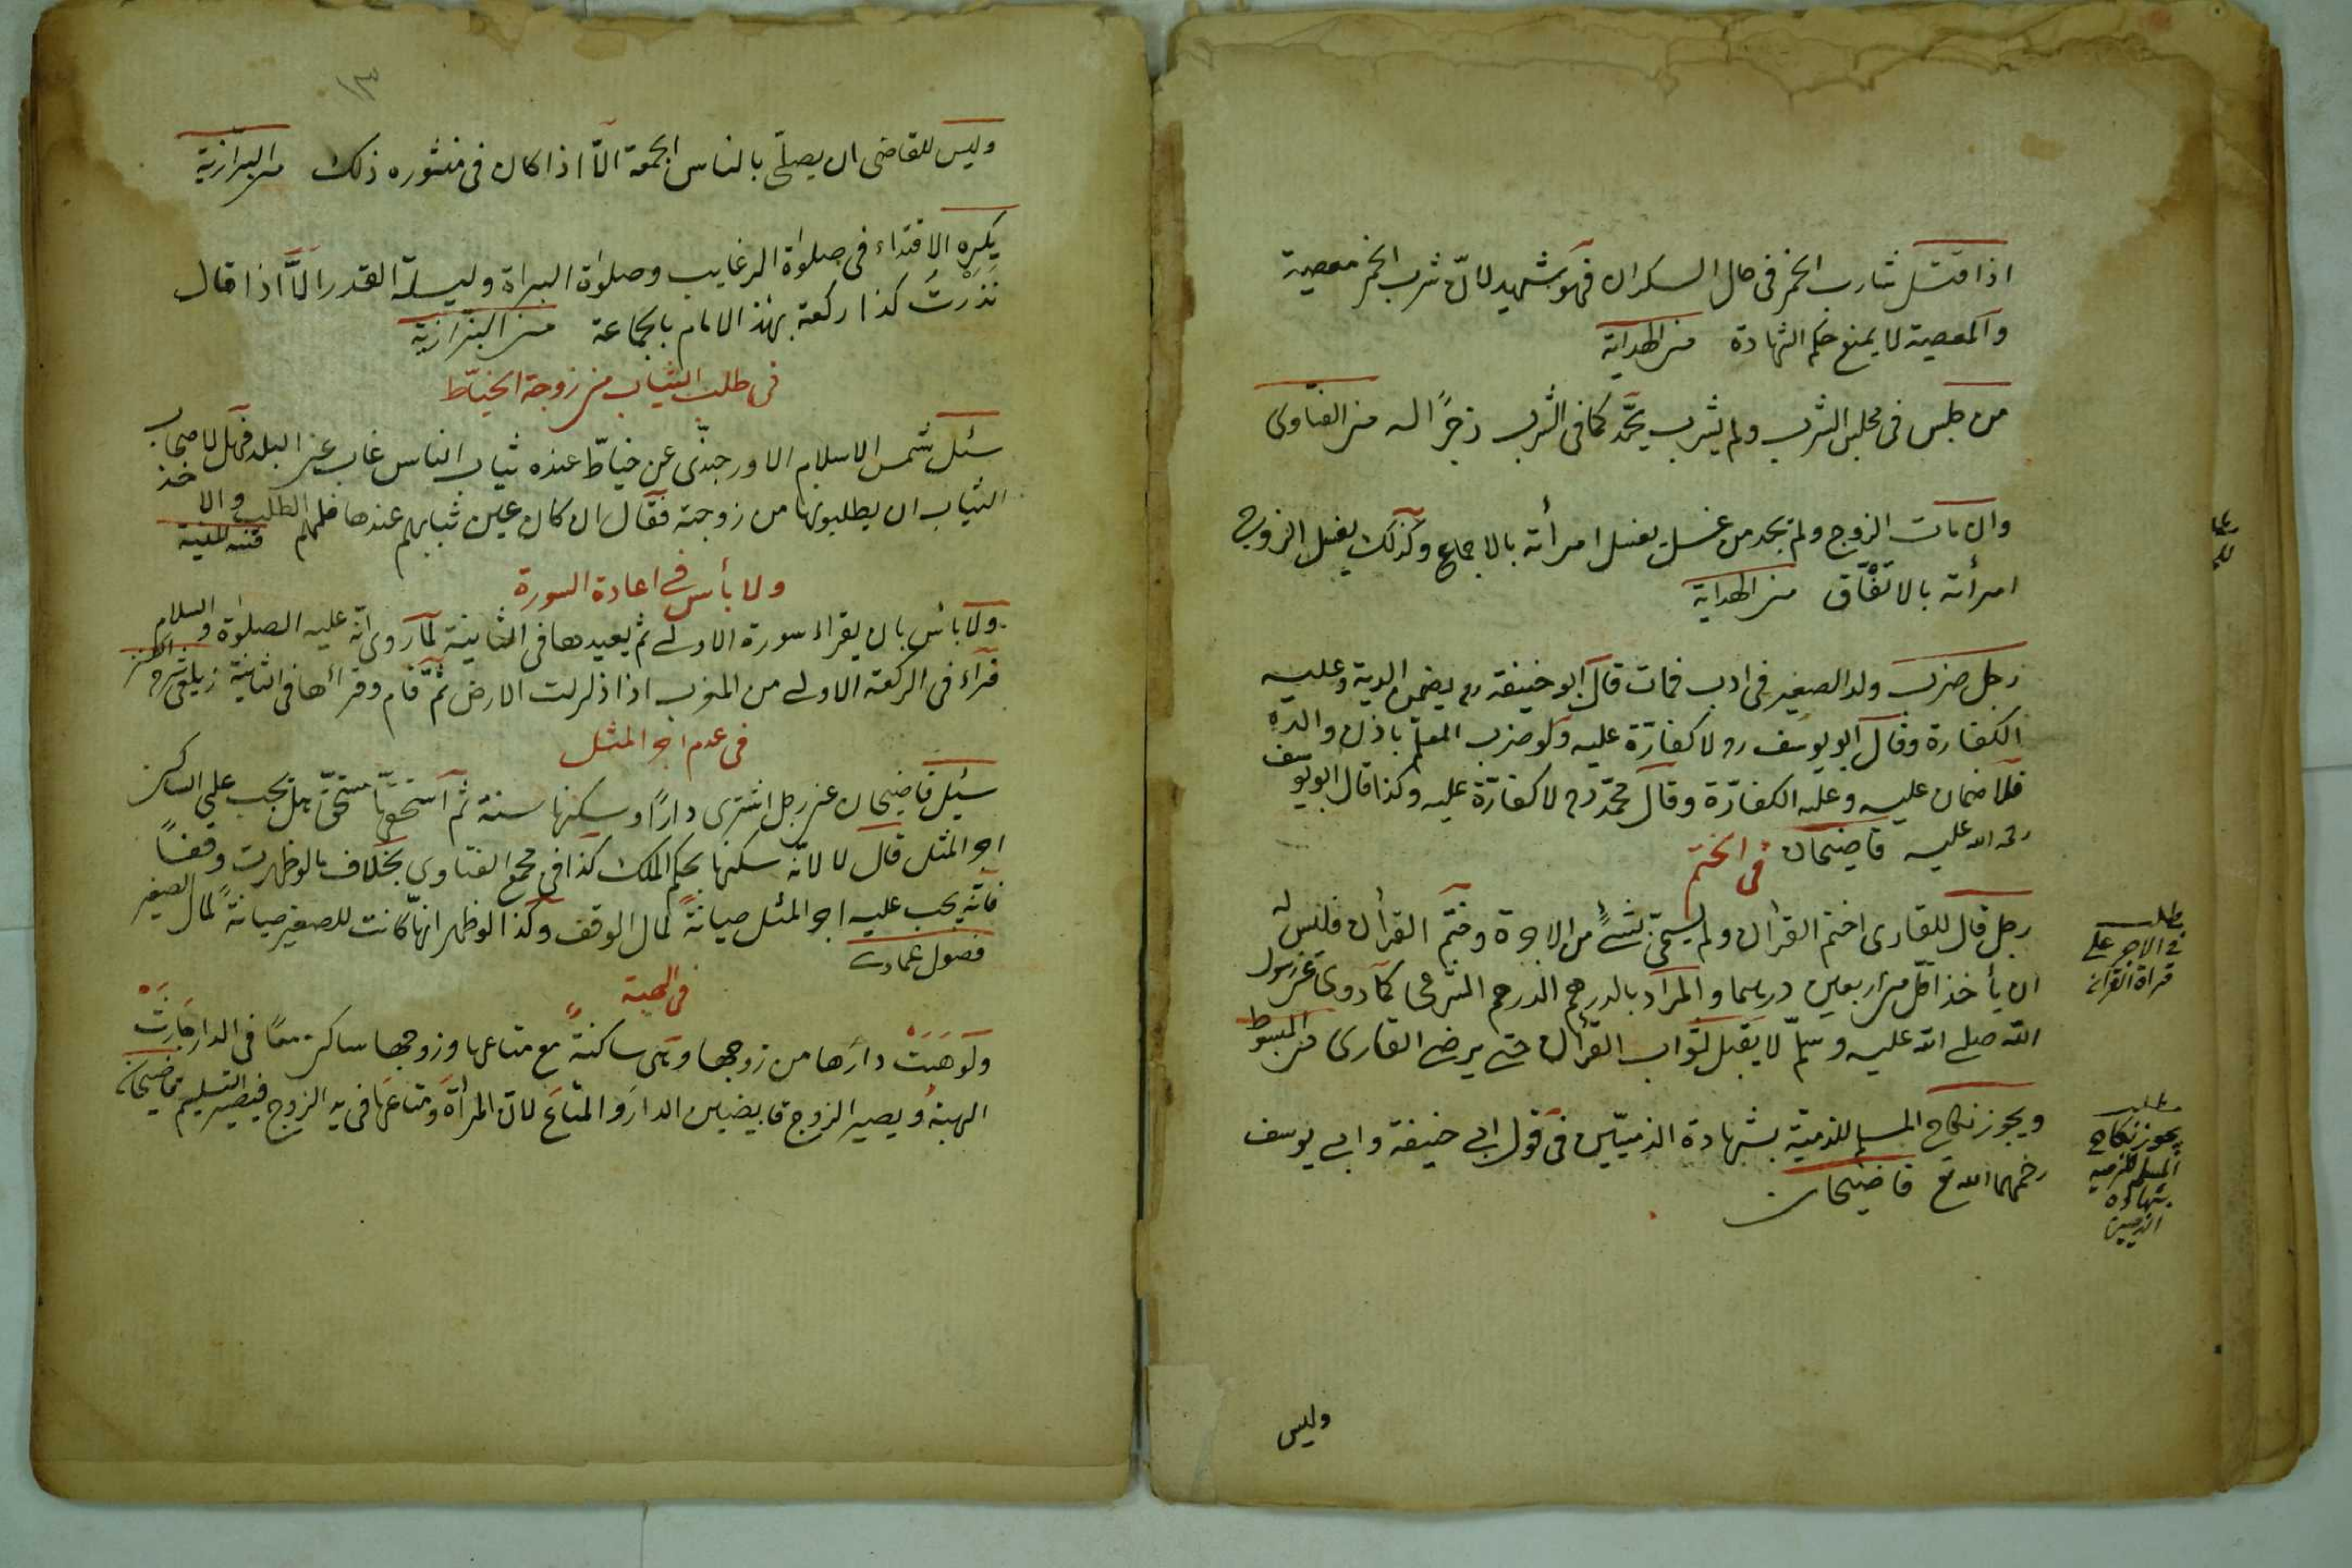 اذا قتل شارب الخمر فى حال السكران فهو شهيد لانّ شرب الخمر معصية
والمعصية لا يمنع حكم الشهادة من الهداية
من جلس فى مجلس الشرب ولم يشرب يحدّ كما فى الشرب زجرًا له من الفتاوى
وان مات الزوج ولم يجد من غسل يغسل امرأته بالاجماع وكذلك يغسل الزوج
امرأته بالاتفاق من الهداية
رجل ضرب ولد الصغير فى ادب فمات قال ابو حنيفة رح يضمن الدية وعليه
الكفارة وقال ابو يوسف رح لا كفارة عليه ولو ضرب المعلم باذن والده
فلا ضمان عليه وعليه الكفارة وقال محمّد رح لا كفارة عليه وكذا قال ابو يوسف
رحمة الله عليه قاضيخان
فى الختم
رجل قال للقارى اختم القرأن ولم يسمّى بشئ من الاجرة وختم القرأن فليس له
ان يأخذ اقل من اربعين درهما والمراد بالدرهم الدرهم الشرعى كما روى عن رسول
الله صلى الله عليه وسلّم لا يقبل ثواب القرأن حتى يرضى القارى من المبسوط
ويجوز نكاح المسلم للذمية بشهادة الذميّين فى قول ابى حنيفة وابى يوسف
رحمهما الله تع قاضيخان
مطلب
فى الاجر على
قراة القرآن
مطلب
يجوز نكاح
المسلم للذميه
بشهادة
الذميين
وليس
١٣
وليس للقاضى ان يصلّى بالناس الجمعة الّا اذا كان فى منشوره ذلك من البزازية
يكره الاقتداء فى صلوٰة الرغايب وصلوٰة البراة وليلة القدر الّا اذا قال
نذرت كذا ركعة بهذا الامام بالجماعة من البزازية
فى طلب الثياب من زوجة الخيّاط
سئل شمس الاسلام الاورجندى عن خيّاط عنده ثياب الناس غاب عن البلد فهل لاصحاب
الثياب ان يطلبوها من زوجته فقال ان كان عين ثيابهم عندها فلهم الطلب والاخذ
قنية المنية
ولا بأس فى اعادة السورة
ولا بأس بان يقراء سورة الاولى ثم يعيدها فى الثانية لما روى انّه عليه الصلوٰة والسلام
قراء فى الركعة الاولى من المغرب اذا زلزلت الارض ثمّ قام وقرأها فى الثانية زيلعى شرح الكنز
فى عدم اجر المثل
سئل قاضيخان عن رجل اشترى دارًا وسكنها سنة ثم استحقها مستحقّ هل يجب على الساكن
اجر المثل قال لا لانّه سكنها بحكم الملك كذا فى مجمع الفتاوى بخلاف ما لو ظهرت وقفًا
فانّه يجب عليه اجر المثل صيانةً لمال الوقف وكذا لو ظهر انّها كانت للصغير صيانةً لمال الصغير
فصول عمادى
فى الهبة
ولو هبت دارها من زوجها وهى ساكنةٌ مع متاعها وزوجها ساكن معًا فى الدار جازت
الهبة ويصير الزوج قابضين الدار والمتاع لان المرأة ومتاعها فى يد الزوج فيصير التسليم قاضيخان